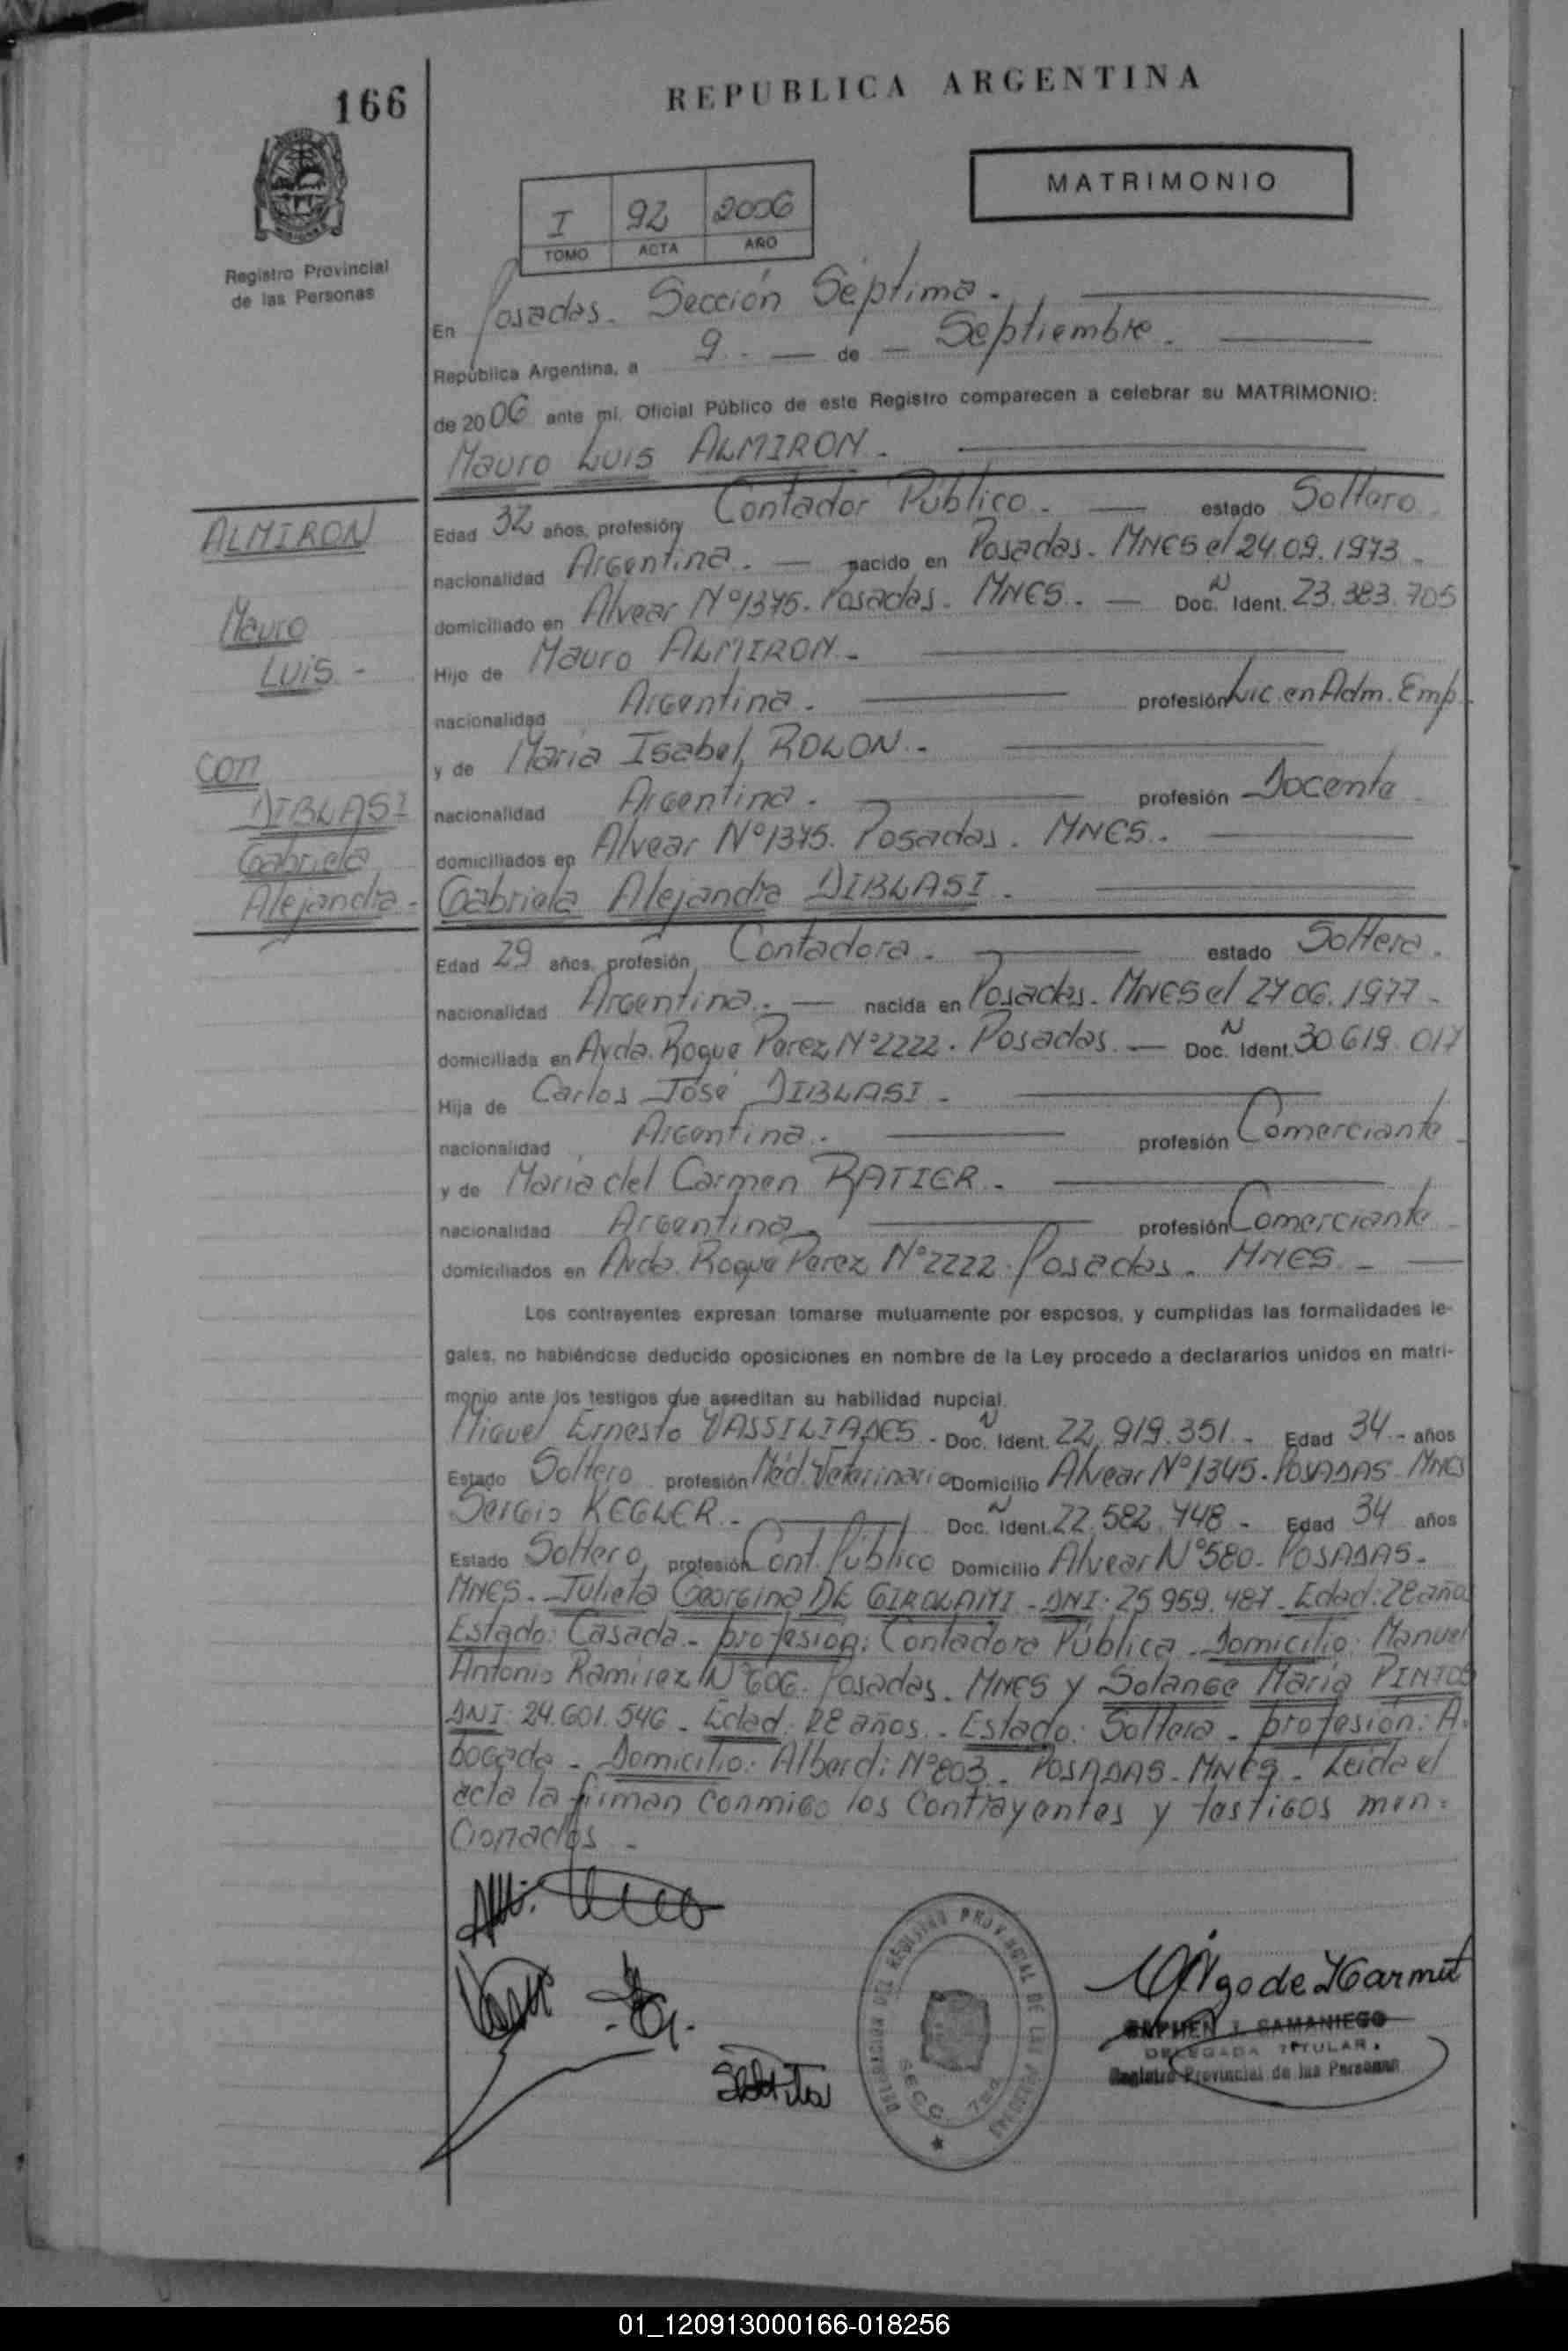 166
REPUBLICA ARGENTINA
MATRIMONIO
I 92 2006
TOMO ACTA AÑO
Registro Provincial
de las Personas
En Posadas. Sección Séptima.
República Argentina, a 9. — de — Septiembre.
de 2006 ante mí, Oficial Público de este Registro comparecen a celebrar su MATRIMONIO:
Mauro Luis ALMIRON.
ALMIRON
Mauro
Luis -
con
DIBLASI
Gabriela
Alejandra -
Edad 32 años, profesión Contador Público. — estado Soltero
nacionalidad Argentina. — nacido en Posadas. MNES el 24.09.1973 -
domiciliado en Alvear Nº1375. Posadas. MNES. — Doc. N Ident. 23.383.705
Hijo de Mauro ALMIRON -
nacionalidad Argentina. profesión Lic. en Adm. Emp.
y de María Isabel ROLON -
nacionalidad Argentina. profesión Docente
domiciliados en Alvear Nº1375. Posadas. MNES.
Gabriela Alejandra DIBLASI.
Edad 29 años, profesión Contadora. estado Soltera.
nacionalidad Argentina. — nacida en Posadas. MNES el 27 06. 1977 -
domiciliada en Avda. Roque Perez Nº2222. Posadas. — Doc. N Ident. 30.619.017
Hija de Carlos José DIBLASI -
nacionalidad Argentina. profesión Comerciante
y de María del Carmen RATIER.
nacionalidad Argentina profesión Comerciante
domiciliados en Avda. Roque Perez Nº2222. Posadas. MNES. —
Los contrayentes expresan tomarse mutuamente por esposos, y cumplidas las formalidades le-
gales, no habiéndose deducido oposiciones en nombre de la Ley procedo a declararlos unidos en matri-
monio ante los testigos que acreditan su habilidad nupcial.
Miguel Ernesto VASSILIADES - Doc. N Ident. 22.919.351 - Edad 34 - años
Estado Soltero profesión Méd. Veterinario Domicilio Alvear Nº1345. POSADAS MNES
Sergio KEGLER - Doc. N Ident. 22.582.748 - Edad 34 años
Estado Soltero, profesión Cont. Público Domicilio Alvear Nº580. POSADAS.
MNES. Julieta Georgina DE GIROLAMI - DNI: 25.959.487 - Edad: 28 años
Estado: Casada - profesión: Contadora Pública. Domicilio: Manuel
Antonio Ramirez Nº606. Posadas. MNES y Solange María PINTOS
DNI: 24.601.546 - Edad: 28 años. - Estado: Soltera - profesión: A.
bogada - Domicilio: Alberdi Nº803. POSADAS - MNES. Leída el
acta la firman conmigo los contrayentes y testigos men=
cionados -
DELEGACION DEL REGISTRO PROVINCIAL DE LAS PERSONAS
SECC. 7ma
CARMEN J. SAMANIEGO
DELEGADA TITULAR
Registro Provincial de las Personas
01_120913000166-018256